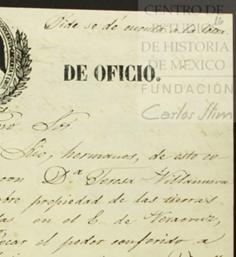 Pide se dé cuenta a la
CENTRO DE
ESTUDIOS
DE HISTORIA
DE MEXICO
FUNDACIÓN
Carlos Slim
16
DE OFICIO.
Sor
hermanos, de esto co
con Dª Teresa Villanueva
bre propiedad de las tierras
as en el E. de Veracruz,
car el poder conferido a